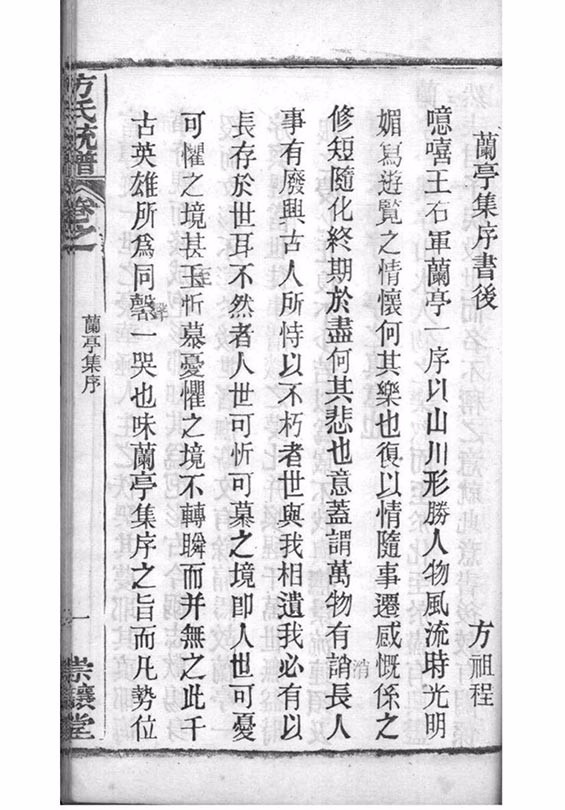 蘭亭集序書後
方祖程
噫嘻王石軍蘭亭一序以山川形勝人物風流時光明
媚寫遊覽之情懷何其樂也復以情隨事遷感慨係之
修短隨化終期於盡何其悲也意蓋謂萬物有誚長人
消
事有廢興古人所恃以不朽者世與我相遺我必有以
長存於世耳不然者人世可忻可慕之境即人也可憂
可懼之境甚玉忻慕憂懼之境不轉瞬而并無之此千
至
古英雄所爲同罄一哭也味蘭亭集序之旨而凡勢位
聲
方氏統譜
卷之一
蘭亭集序
一
崇讓堂